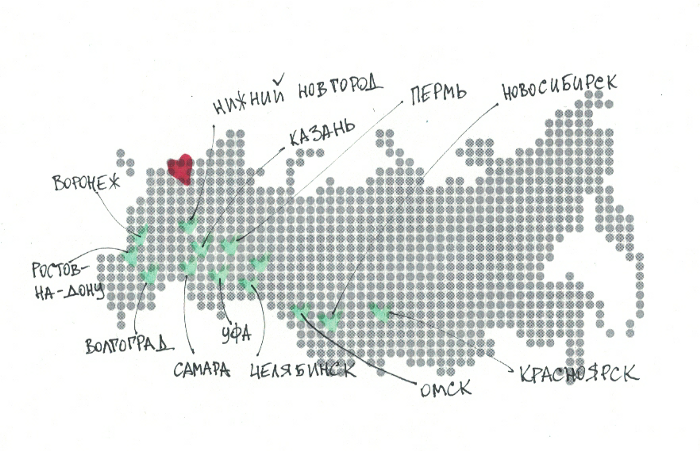 НИЖНИЙ НОВГОРОД
ПЕРМЬ
НОВОСИБИРСК
КАЗАНЬ
ВОРОНЕЖ
РОСТОВ-
НА-ДОНУ
ВОЛГОГРАД
УФА
САМАРА
ЧЕЛЯБИНСК
ОМСК
КРАСНОЯРСК